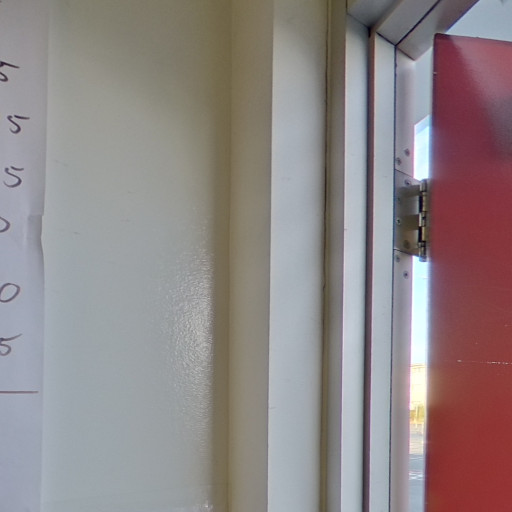 5
5
5
0
0
5